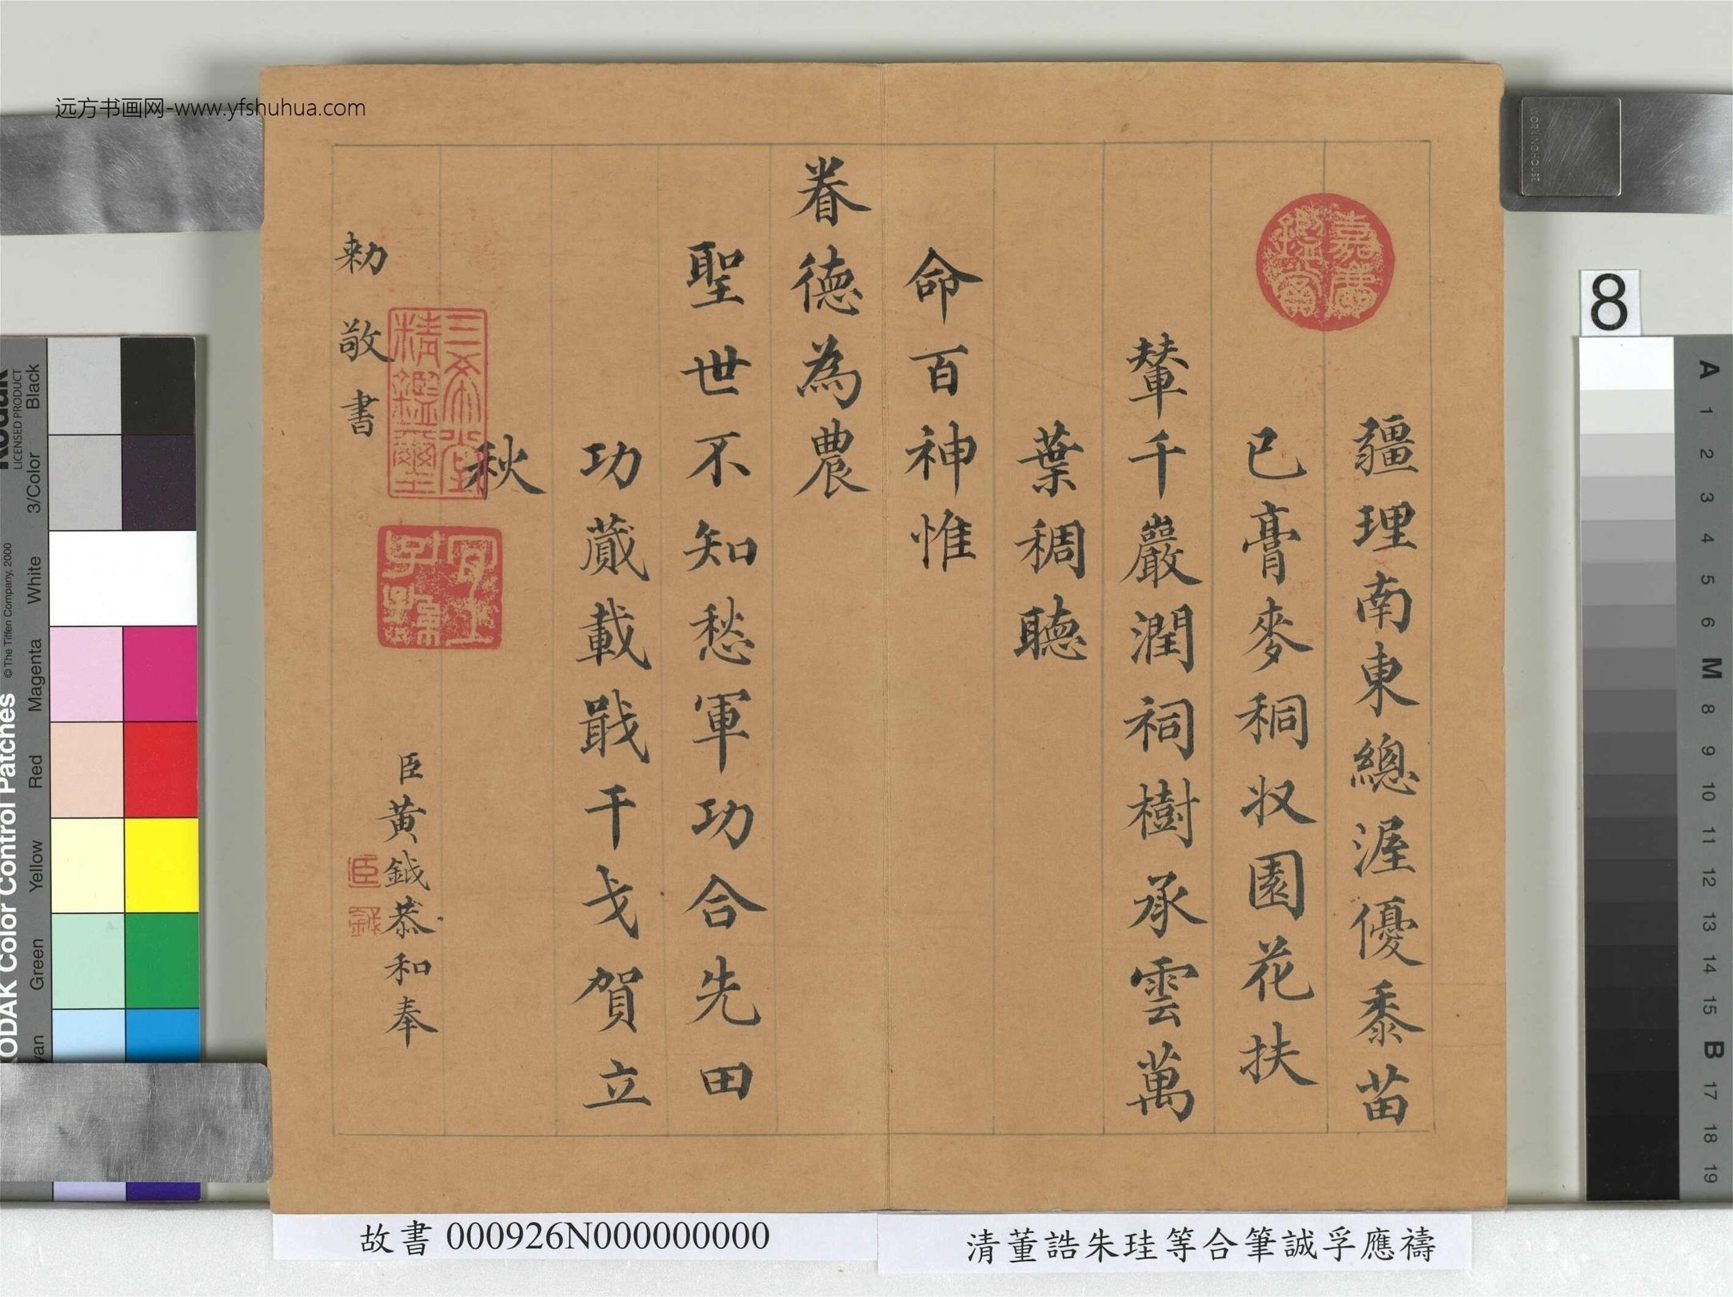 远方书画网-www.yfshuhua.com
疆理南東總渥優黍苗
已膏麥秱収園花扶
輦千巖潤祠樹承雲萬
葉稠聽
命百神惟
眷德為農
聖世不知愁軍功合先田
功蕆載戢干戈賀立
秋
臣黃鉞恭和奉
勑敬書
嘉慶鑑賞
三希堂精鑑璽
宜子孫
臣鉞
8
KODAK Color Control Patches
© The Tiffen Company, 2000
Kodak
LICENSED PRODUCT
Black
3/Color
White
Magenta
Red
Yellow
Green
Cyan
A 1 2 3 4 5 6 M 8 9 10 11 12 13 14 15 B 17 18 19
故書 000926N000000000
清董誥朱珪等合筆誠孚應禱